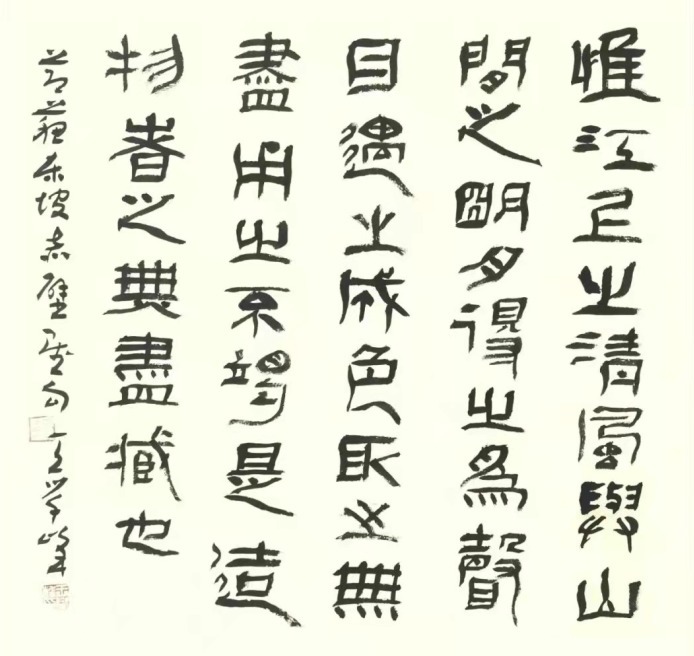 惟江上之清風與山
間之明月得之為聲
目遇之成色取之無
盡用之不竭是造
物者之無盡藏也
节蘇东坡赤壁賦句 学峰